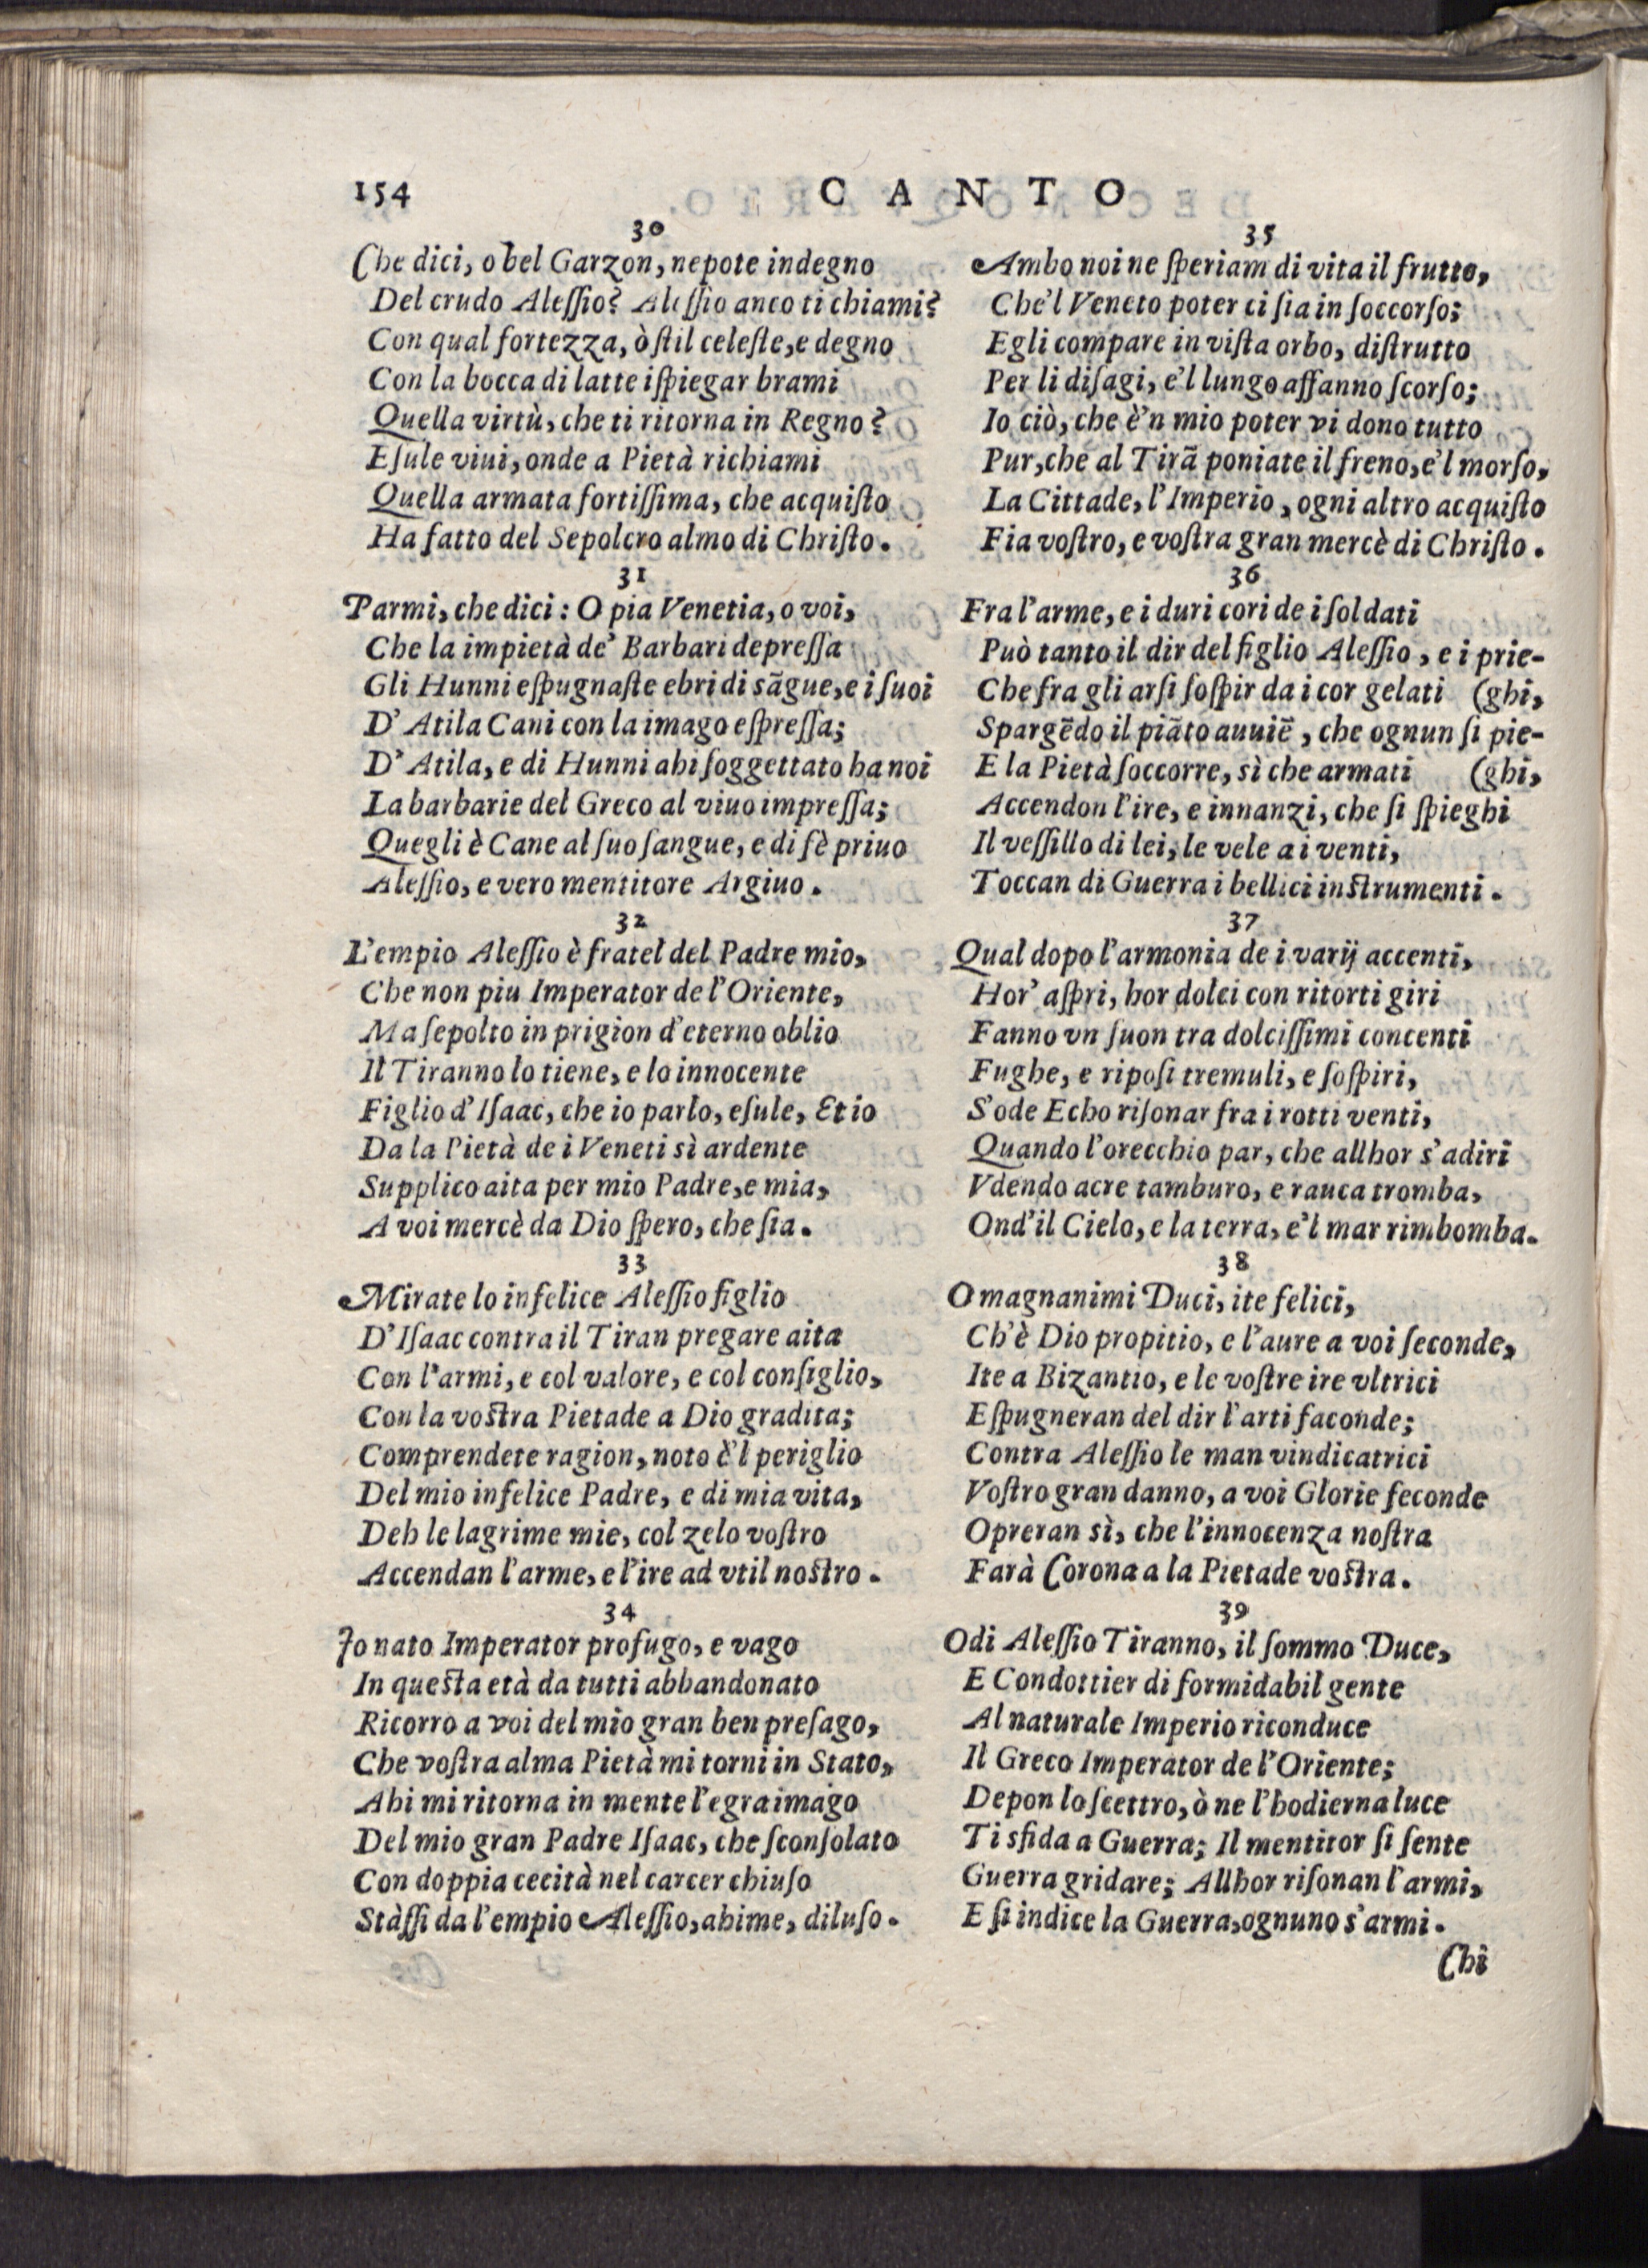 154
CANTO
30
Che dici, o bel Garzon, nepote indegno
Del crudo Aleſſio? Aleſſio anco ti chiami?
Con qual fortezza, ò ſtil celeſte, e degno
Con la bocca di latte iſpiegar brami
Quella virtù, che ti ritorna in Regno?
Eſule viui, onde a Pietà richiami
Quella armata fortiſſima, che acquiſto
Ha fatto del Sepolcro almo di Chriſto.
31
Parmi, che dici: O pia Venetia, o voi,
Che la impietà de' Barbari depreſſa
Gli Hunni eſpugnaſte ebri di sãgue, e i ſuoi
D' Atila Cani con la imago eſpreſſa;
D' Atila, e di Hunni ahi ſoggettato ha noi
La barbarie del Greco al viuo impreſſa;
Quegli è Cane al ſuo ſangue, e di fè priuo
Aleſſio, e vero mentitore Argiuo.
32
L'empio Aleſſio è fratel del Padre mio,
Che non piu Imperator de l'Oriente,
Ma ſepolto in prigion d'eterno oblio
Il Tiranno lo tiene, e lo innocente
Figlio d'Iſaac, che io parlo, eſule, Et io
Da la Pietà de i Veneti sì ardente
Supplico aita per mio Padre, e mia,
A voi mercè da Dio ſpero, che ſia.
33
Mirate lo infelice Aleſſio figlio
D'Iſaac contra il Tiran pregare aita
Con l'armi, e col valore, e col conſiglio,
Con la voſtra Pietade a Dio gradita;
Comprendete ragion, noto è'l periglio
Del mio infelice Padre, e di mia vita,
Deh le lagrime mie, col zelo voſtro
Accendan l'arme, e l'ire ad vtil noſtro.
34
Io nato Imperator profugo, e vago
In queſta età da tutti abbandonato
Ricorro a voi del mio gran ben preſago,
Che voſtra alma Pietà mi torni in Stato,
Ahi mi ritorna in mente l'egra imago
Del mio gran Padre Iſaac, che ſconſolato
Con doppia cecità nel carcer chiuſo
Stàſſi da l'empio Aleſſio, ahime, diluſo.
35
Ambo noi ne ſperiam di vita il frutto,
Che'l Veneto poter ci ſia in ſoccorſo;
Egli compare in viſta orbo, diſtrutto
Per li diſagi, e'l lungo affanno ſcorſo;
Io ciò, che è'n mio poter vi dono tutto
Pur, che al Tirã poniate il freno, e'l morſo,
La Cittade, l'Imperio, ogni altro acquiſto
Fia voſtro, e voſtra gran mercè di Chriſto.
36
Fra l'arme, e i duri cori de i ſoldati
Può tanto il dir del figlio Aleſſio, e i prie-
Che fra gli arſi ſoſpir da i cor gelati (ghi,
Spargẽdo il piãto auuiẽ, che ognun ſi pie-
E la Pietà ſoccorre, sì che armati (ghi,
Accendon l'ire, e innanzi, che ſi ſpieghi
Il veſſillo di lei, le vele a i venti,
Toccan di Guerra i bellici inſtrumenti.
37
Qual dopo l'armonia de i varij accenti,
Hor' aſpri, hor dolci con ritorti giri
Fanno vn ſuon tra dolciſſimi concenti
Fughe, e ripoſi tremuli, e ſoſpiri,
S'ode Echo riſonar fra i rotti venti,
Quando l'orecchio par, che allhor s'adiri
Vdendo acre tamburo, e rauca tromba,
Ond'il Cielo, e la terra, e'l mar rimbomba.
38
O magnanimi Duci, ite felici,
Ch'è Dio propitio, e l'aure a voi ſeconde,
Ite a Bizantio, e le voſtre ire vltrici
Eſpugneran del dir l'arti faconde;
Contra Aleſſio le man vindicatrici
Voſtro gran danno, a voi Glorie feconde
Opreran sì, che l'innocenza noſtra
Farà Corona a la Pietade voſtra.
39
Odi Aleſſio Tiranno, il ſommo Duce,
E Condottier di formidabil gente
Al naturale Imperio riconduce
Il Greco Imperator de l'Oriente;
Depon lo ſcettro, ò ne l'hodierna luce
Ti sfida a Guerra; Il mentitor ſi ſente
Guerra gridare; Allhor riſonan l'armi,
E ſi indice la Guerra, ognuno s'armi.
Chi